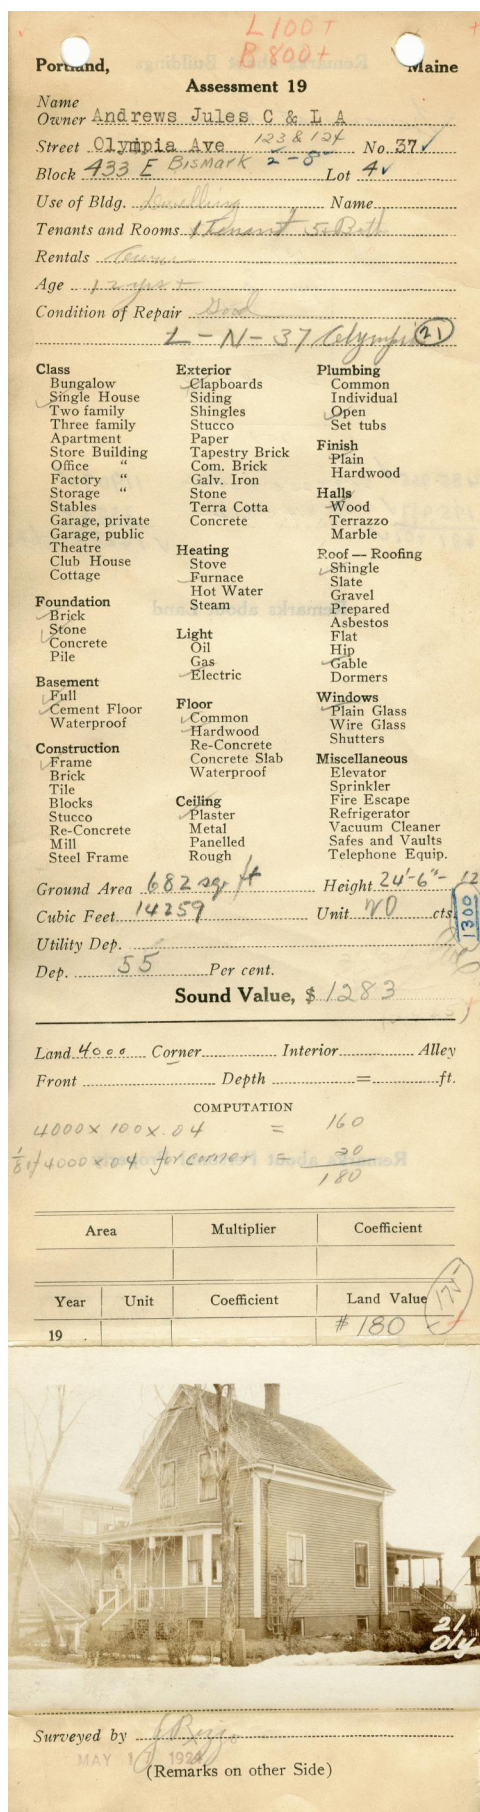 L 100+
B 800+
Portland, Maine
Assessment 19
Name
Owner Andrews Jules C & L A
123 & 124
Street Olympia Ave 2-8 No. 37
Block 433 E Bismark Lot 4
Use of Bldg. Dwelling Name
Tenants and Rooms 1 Tenant 5 & Bath
Rentals Owner
Age 12 yrs +
Condition of Repair Good
L-N-37 Olympia 21
Class
Bungalow
Single House
Two family
Three family
Apartment
Store Building
Office "
Factory "
Storage "
Stables
Garage, private
Garage, public
Theatre
Club House
Cottage
Foundation
Brick
Stone
Concrete
Pile
Basement
Full
Cement Floor
Waterproof
Construction
Frame
Brick
Tile
Blocks
Stucco
Re-Concrete
Mill
Steel Frame
Exterior
Clapboards
Siding
Shingles
Stucco
Paper
Tapestry Brick
Com. Brick
Galv. Iron
Stone
Terra Cotta
Concrete
Heating
Stove
Furnace
Hot Water
Steam
Light
Oil
Gas
Electric
Floor
Common
Hardwood
Re-Concrete
Concrete Slab
Waterproof
Ceiling
Plaster
Metal
Panelled
Rough
Plumbing
Common
Individual
Open
Set tubs
Finish
Plain
Hardwood
Halls
Wood
Terrazzo
Marble
Roof — Roofing
Shingle
Slate
Gravel
Prepared
Asbestos
Flat
Hip
Gable
Dormers
Windows
Plain Glass
Wire Glass
Shutters
Miscellaneous
Elevator
Sprinkler
Fire Escape
Refrigerator
Vacuum Cleaner
Safes and Vaults
Telephone Equip.
Ground Area 682 sq ft Height 24'-6"- 12
Cubic Feet 14259 Unit 20 cts.
1300
Utility Dep.
Dep. 55 Per cent.
Sound Value, $ 1283
Land 4000 Corner Interior Alley
Front Depth = ft.
COMPUTATION
4000 x 100 x .04 = 160
1/8 of 4000 x 04 for corner = 20
180
Area Multiplier Coefficient
Year Unit Coefficient Land Value
175
19 . $ 180
21
Oly
Surveyed by
MAY 1924
(Remarks on other Side)